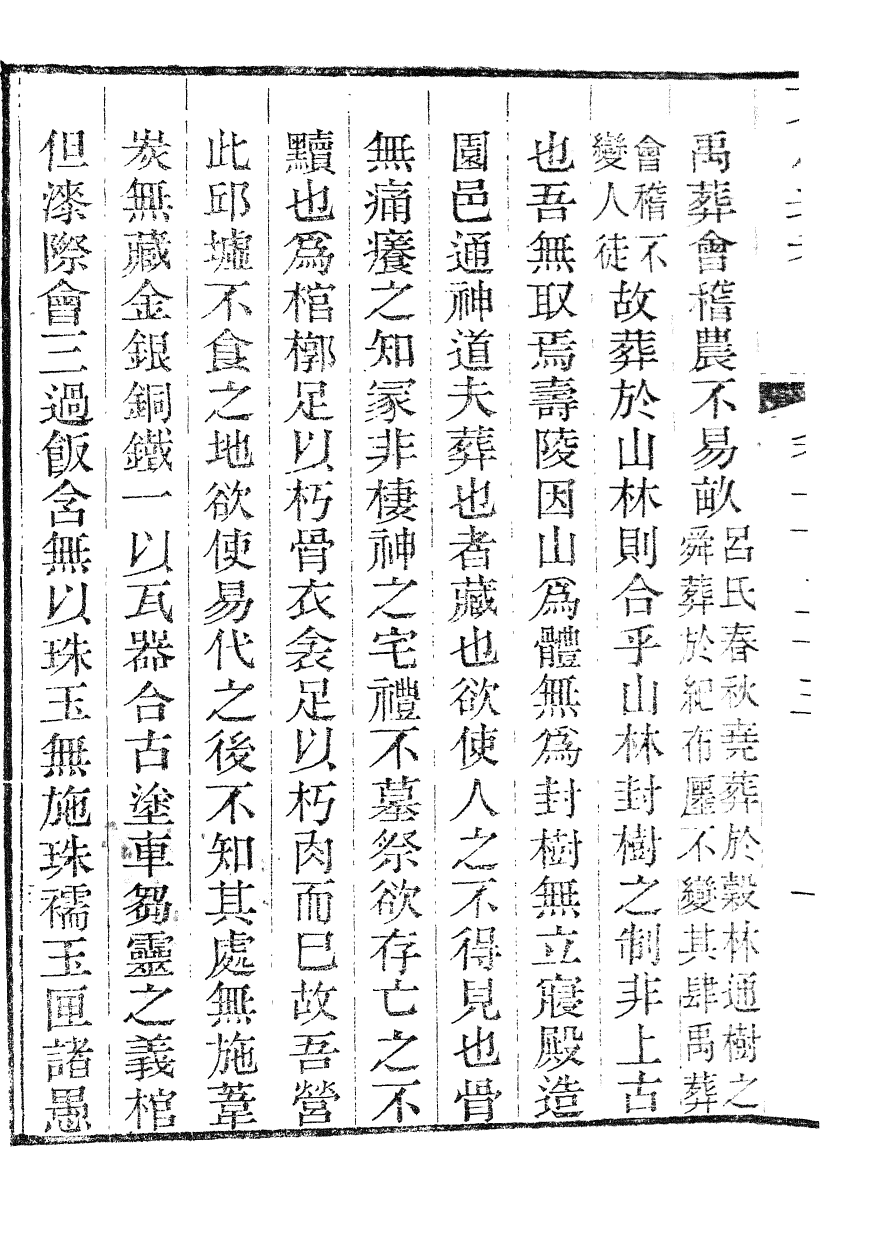 禹葬會稽農不易畝呂氏春秋堯葬於穀林通樹之舜葬於紀市廛不變其肆禹葬
會稽不變人徒故葬於山林則合乎山林封樹之制非上古
也吾無取焉壽陵因山爲體無爲封樹無立寢殿造
園邑通神道夫葬也者藏也欲使人之不得見也骨
無痛癢之知冢非棲神之宅禮不墓祭欲存亡之不
黷也爲棺槨足以朽骨衣衾足以朽肉而已故吾營
此邱墟不食之地欲使易代之後不知其處無施葦
炭無藏金銀銅鐵一以瓦器合古塗車芻靈之義棺
但漆際會三過飯含無以珠玉無施珠襦玉匣諸愚